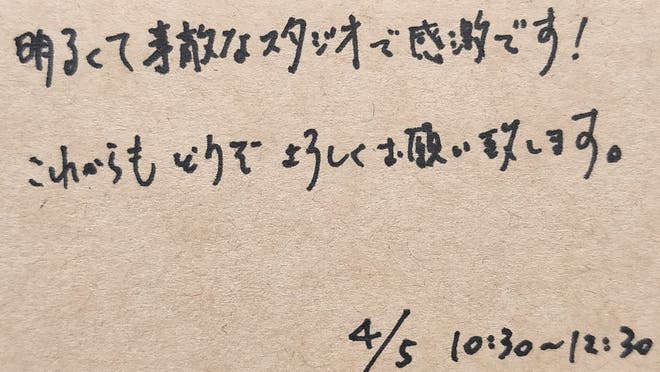 明るくて素敵なスタジオで感激です!
これからもどうぞよろしくお願い致します。
4/5 10:30~12:30